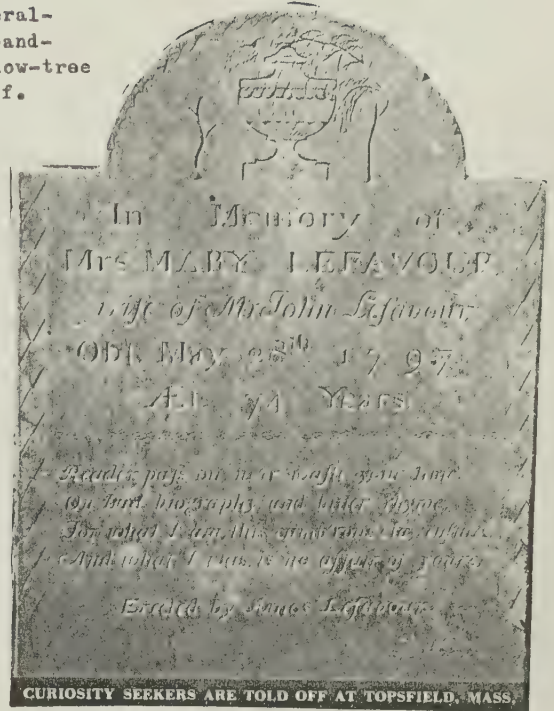 eral-
and-
ow-tree
f.
In Memory of
Mrs MARY LEFAVOUR
wife of Mr John Lefavour,
Obt. May 28th 1797
Æt. 74 Years
Reader pass on nor waste your time
On bad biography and bitter rhyme
For what I am this cumbrous clay insures
And what I was is no affair of yours
Erected by Lefavour
CURIOSITY SEEKERS ARE TOLD OFF AT TOPSFIELD, MASS,